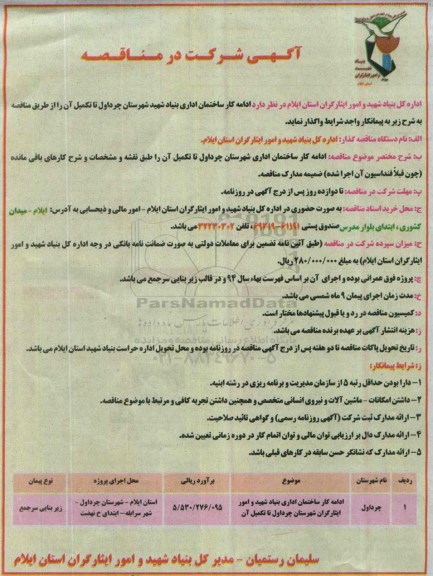 بنیاد
شهید
و امور ایثارگران
آگهی شرکت در مناقصه
اداره کل بنیاد شهید و امور ایثارگران استان ایلام در نظر دارد ادامه کار ساختمان اداری بنیاد شهید شهرستان چرداول تا تکمیل آن را از طریق مناقصه
به شرح زیر به پیمانکار واجد شرایط واگذار نماید.
الف: نام دستگاه مناقصه گذار: اداره کل بنیاد شهید و امور ایثارگران استان ایلام.
ب: شرح مختصر موضوع مناقصه: ادامه کار ساختمان اداری شهرستان چرداول تا تکمیل آن را طبق نقشه و مشخصات و شرح کارهای باقی مانده
(چون قبلاً فنداسیون آن اجرا شده) ضمیمه مدارک مناقصه.
پ: مهلت شرکت در مناقصه: تا دوازده روز پس از درج آگهی در روزنامه.
ج: محل خرید اسناد مناقصه: به صورت حضوری در اداره کل بنیاد شهید و امور ایثارگران استان ایلام - امور مالی و ذیحسابی به آدرس: ایلام - میدان
کشوری، ابتدای بلوار مدرس صندوق پستی ۶۱۱۹۱-۶۹۳۱۹، تلفن ۳۲۲۳۰۳۰۲ می باشد.
ح: میزان سپرده شرکت در مناقصه: (طبق آئین نامه تضمین برای معاملات دولتی به صورت ضمانت نامه بانکی در وجه اداره کل بنیاد شهید و امور
ایثارگران استان ایلام) به مبلغ ۲۸۰/۰۰۰/۰۰۰ ریال.
چ: پروژه فوق عمرانی بوده و اجرای آن بر اساس فهرست بهاء سال ۹۴ و در قالب زیر بنایی سرجمع می باشد.
خ: مدت زمان اجرای پیمان ۹ ماه شمسی می باشد.
د: کمیسیون مناقصه در رد و یا قبول پیشنهادها مختار است.
ر: هزینه انتشار آگهی بر عهده برنده مناقصه می باشد.
ز: تاریخ تحویل پاکات مناقصه تا دو هفته پس از درج آگهی مناقصه در روزنامه بوده و محل تحویل اداره حراست بنیاد شهید استان ایلام می باشد.
ژ: شرایط پیمانکار:
۱- دارا بودن حداقل رتبه ۵ از سازمان مدیریت و برنامه ریزی در رشته ابنیه.
۲- داشتن امکانات - ماشین آلات و نیروی انسانی متخصص و همچنین داشتن تجربه کافی و مرتبط با موضوع مناقصه.
۳- ارائه مدارک ثبت شرکت (آگهی روزنامه رسمی) و گواهی تائید صلاحیت.
۴- ارائه مدارک دال بر ارزیابی توان مالی و توان اتمام کار در دوره زمانی تعیین شده.
۵- ارائه مدارک که نشانگر حسن سابقه در کارهای قبلی باشد.
ردیف نام شهرستان موضوع برآورد ریالی محل اجرای پروژه نوع پیمان
۱ چرداول ادامه کار ساختمان اداری بنیاد شهید و امور ایثارگران شهرستان چرداول تا تکمیل آن ۵/۵۳۰/۲۷۶/۰۹۵ استان ایلام - شهرستان چرداول - شهر سرابله - ابتدای خ نهضت زیر بنایی سرجمع
سلیمان رستمیان - مدیر کل بنیاد شهید و امور ایثارگران استان ایلام
ParsNamadData